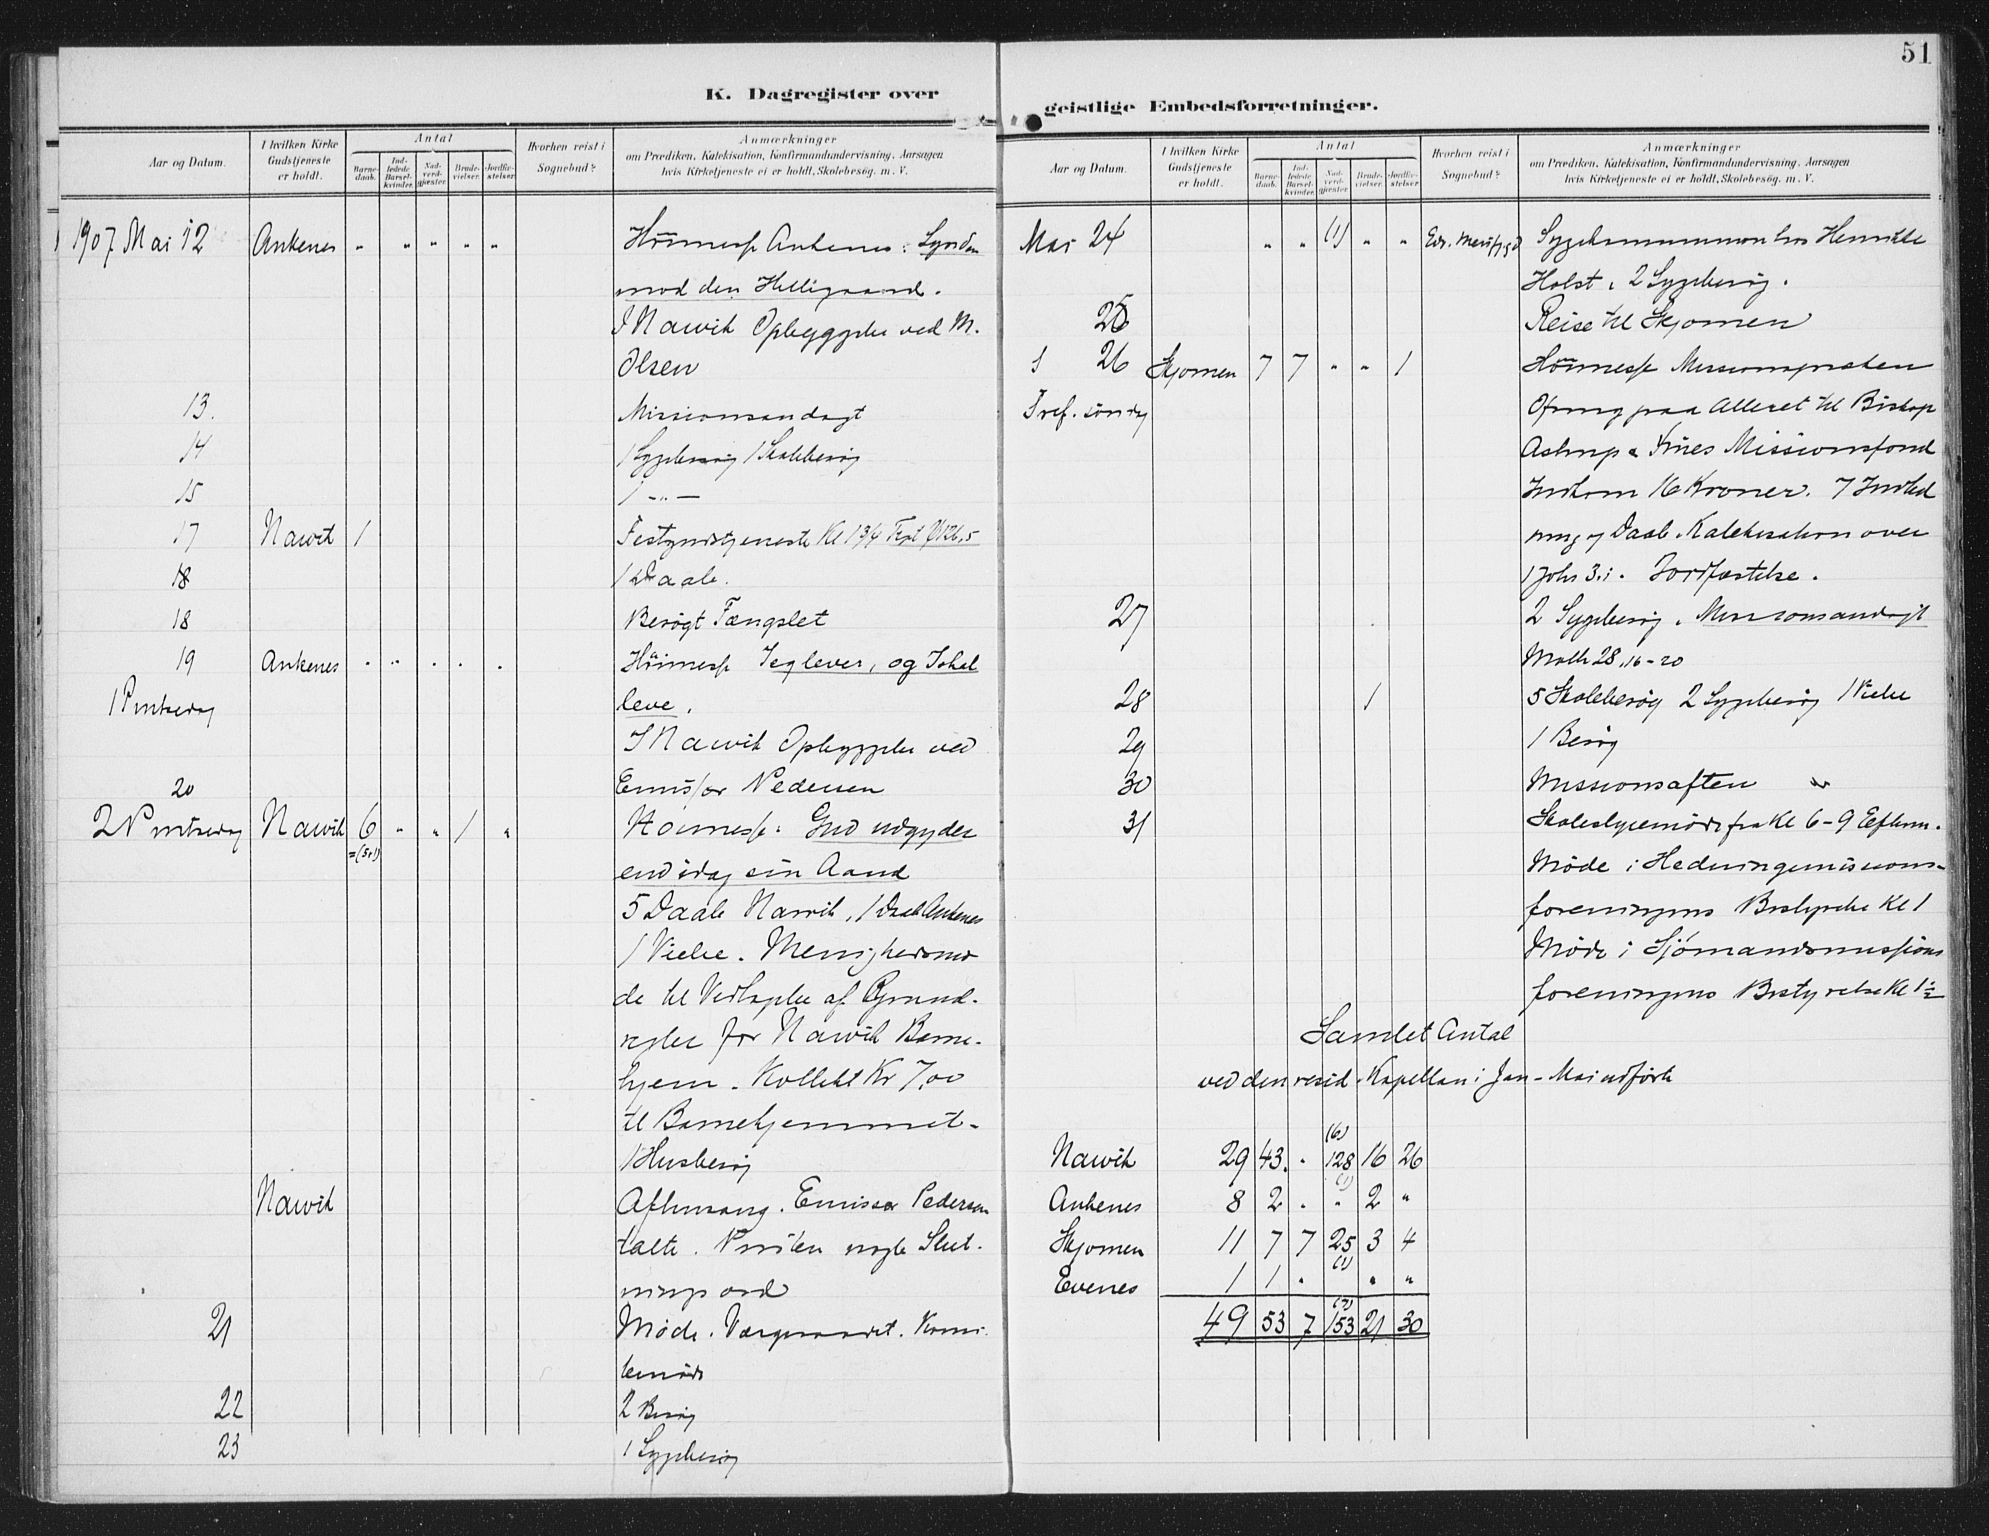 51
K. Dagregister over
geistlige Embedsforretninger.
Aar og Datum.
I hvilken Kirke Gudstjeneste er holdt.
Antal
Barne-daab.
Ind-ledede Barsel-kvinder.
Nad-verd-gjæster.
Brude-vielser.
Jordfæ-stelser.
Hvorhen reist i Sognebud?
Anmærkninger
om Prædiken, Katekisation, Konfirmandundervisning, Aarsagen
hvis Kirketjeneste ei er holdt, Skolebesøg. m. V.
1907 Mai 12 Ankenes " " " " " Høimesse Ankenes: Synden
mod den Helligaand.
I Narvik Opbyggelse ved M.
Olsen
13. Missionsandagt
14 1 Sygebesøg 1 Skolebesøg
15 1 - " -
17 Narvik 1 Festgudstjeneste Kl 1 3/4
18 1 Daab.
18 Besøgt Fængslet
19 Ankenes " " " " " Høimesse Jeg lever, og I skal
1 Pintsedag leve.
I Narvik Opbyggelse ved
20 Emissør Pedersen
2 Pintsedag Narvik 6 " " 1 " Høimesse: Gud udgyder
=(5+1) end idag sin Aand
5 Daab Narvik, 1 Daab Ankenes
1 Vielse. Menighedsmø
de til Vedtagelse af Grund-
regler for Narvik Barne-
hjem. Kollekt Kr 7,00
til Barnehjemmet.
1 Husbesøg
Narvik Aftensang. Emissør Pedersen
talte. Præsten nogle Slut-
ningsord
21 Møde. Værgeraadet. Komi-
temøde
22 2 Besøg
23 1 Sygebesøg
Aar og Datum.
I hvilken Kirke Gudstjeneste er holdt.
Antal
Barne-daab.
Ind-ledede Barsel-kvinder.
Nad-verd-gjæster.
Brude-vielser.
Jordfæ-stelser.
Hvorhen reist i Sognebud?
Anmærkninger
om Prædiken, Katekisation, Konfirmandundervisning, Aarsagen
hvis Kirketjeneste ei er holdt, Skolebesøg. m. V.
Mai 24 " " (1) " " Sygekommunion hos Henrikke
Holst, 2 Sygebesøg.
25 Reise til Skjomen
S 26 Skjomen 7 7 " " 1 Høimesse Missionspræken
Tref. søndag Ofring paa Alteret til Biskop
Astrup & Frues Missionsfond
Indkom 16 Kroner. 7 Indled
ning og Daab. Katekisation over
1 Joh 3.1. Jordfæstelse.
27 2 Sygebesøg. Missionsandagt
Math 28, 16-20
28 1 5 Skolebesøg 2 Sygebesøg 1 Vielse
29 1 Besøg
30 Missionsaften
31 Skolestyremøde fra Kl 6-9 Efterm.
Møde i Hedningemissions-
foreningens Bestyrelse Kl 1
Møde i Sjømandsmissions
foreningens Bestyrelse Kl 1½
Samlet Antal
ved den resid. Kapellan i Jan - Mai udført
(6)
Narvik 29 43 . 128 16 26
Ankenes 8 2 . " 2 "
Skjomen 11 7 7 25 3 4
(1)
Evenes 1 1 " " "
(7)
49 53 7 153 21 30